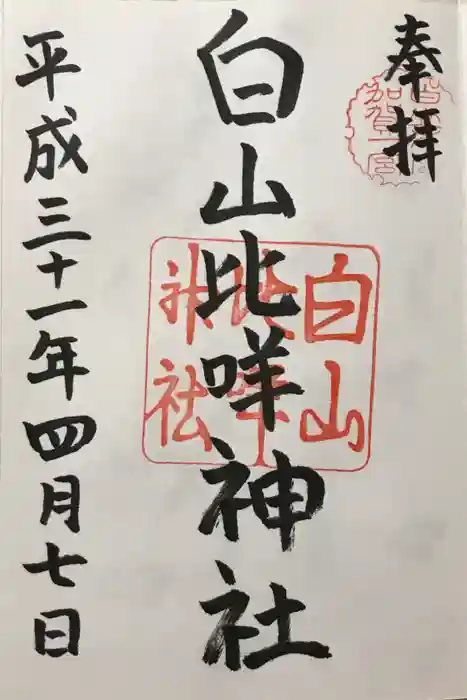 奉拝
加賀一宮
白山比咩神社
白山比咩神社
平成三十一年四月七日